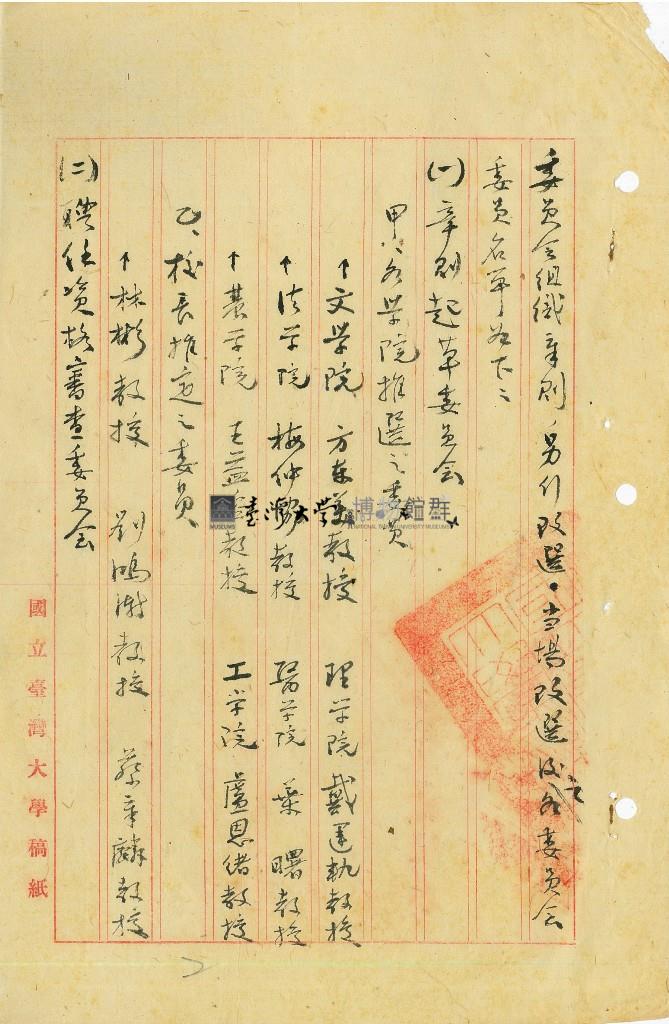 委員会組織章則，另行改選。当場改選後之各委員会
委員名單如下：
(一)章則起草委員会
甲、各学院推選之委員
↑文学院 方東美教授 理学院 戴運軌教授
↑法学院 梅仲協教授 醫学院 葉曙教授
↑農学院 王益滔教授 工学院 盧恩緒教授
乙、校長推定之委員
↑林彬教授 劉鴻漸教授 蔡章麟教授
(二)聘任資格審查委員会
國立臺灣大學稿紙
臺灣大學 博物館群
MUSEUMS
NATIONAL TAIWAN UNIVERSITY MUSEUMS